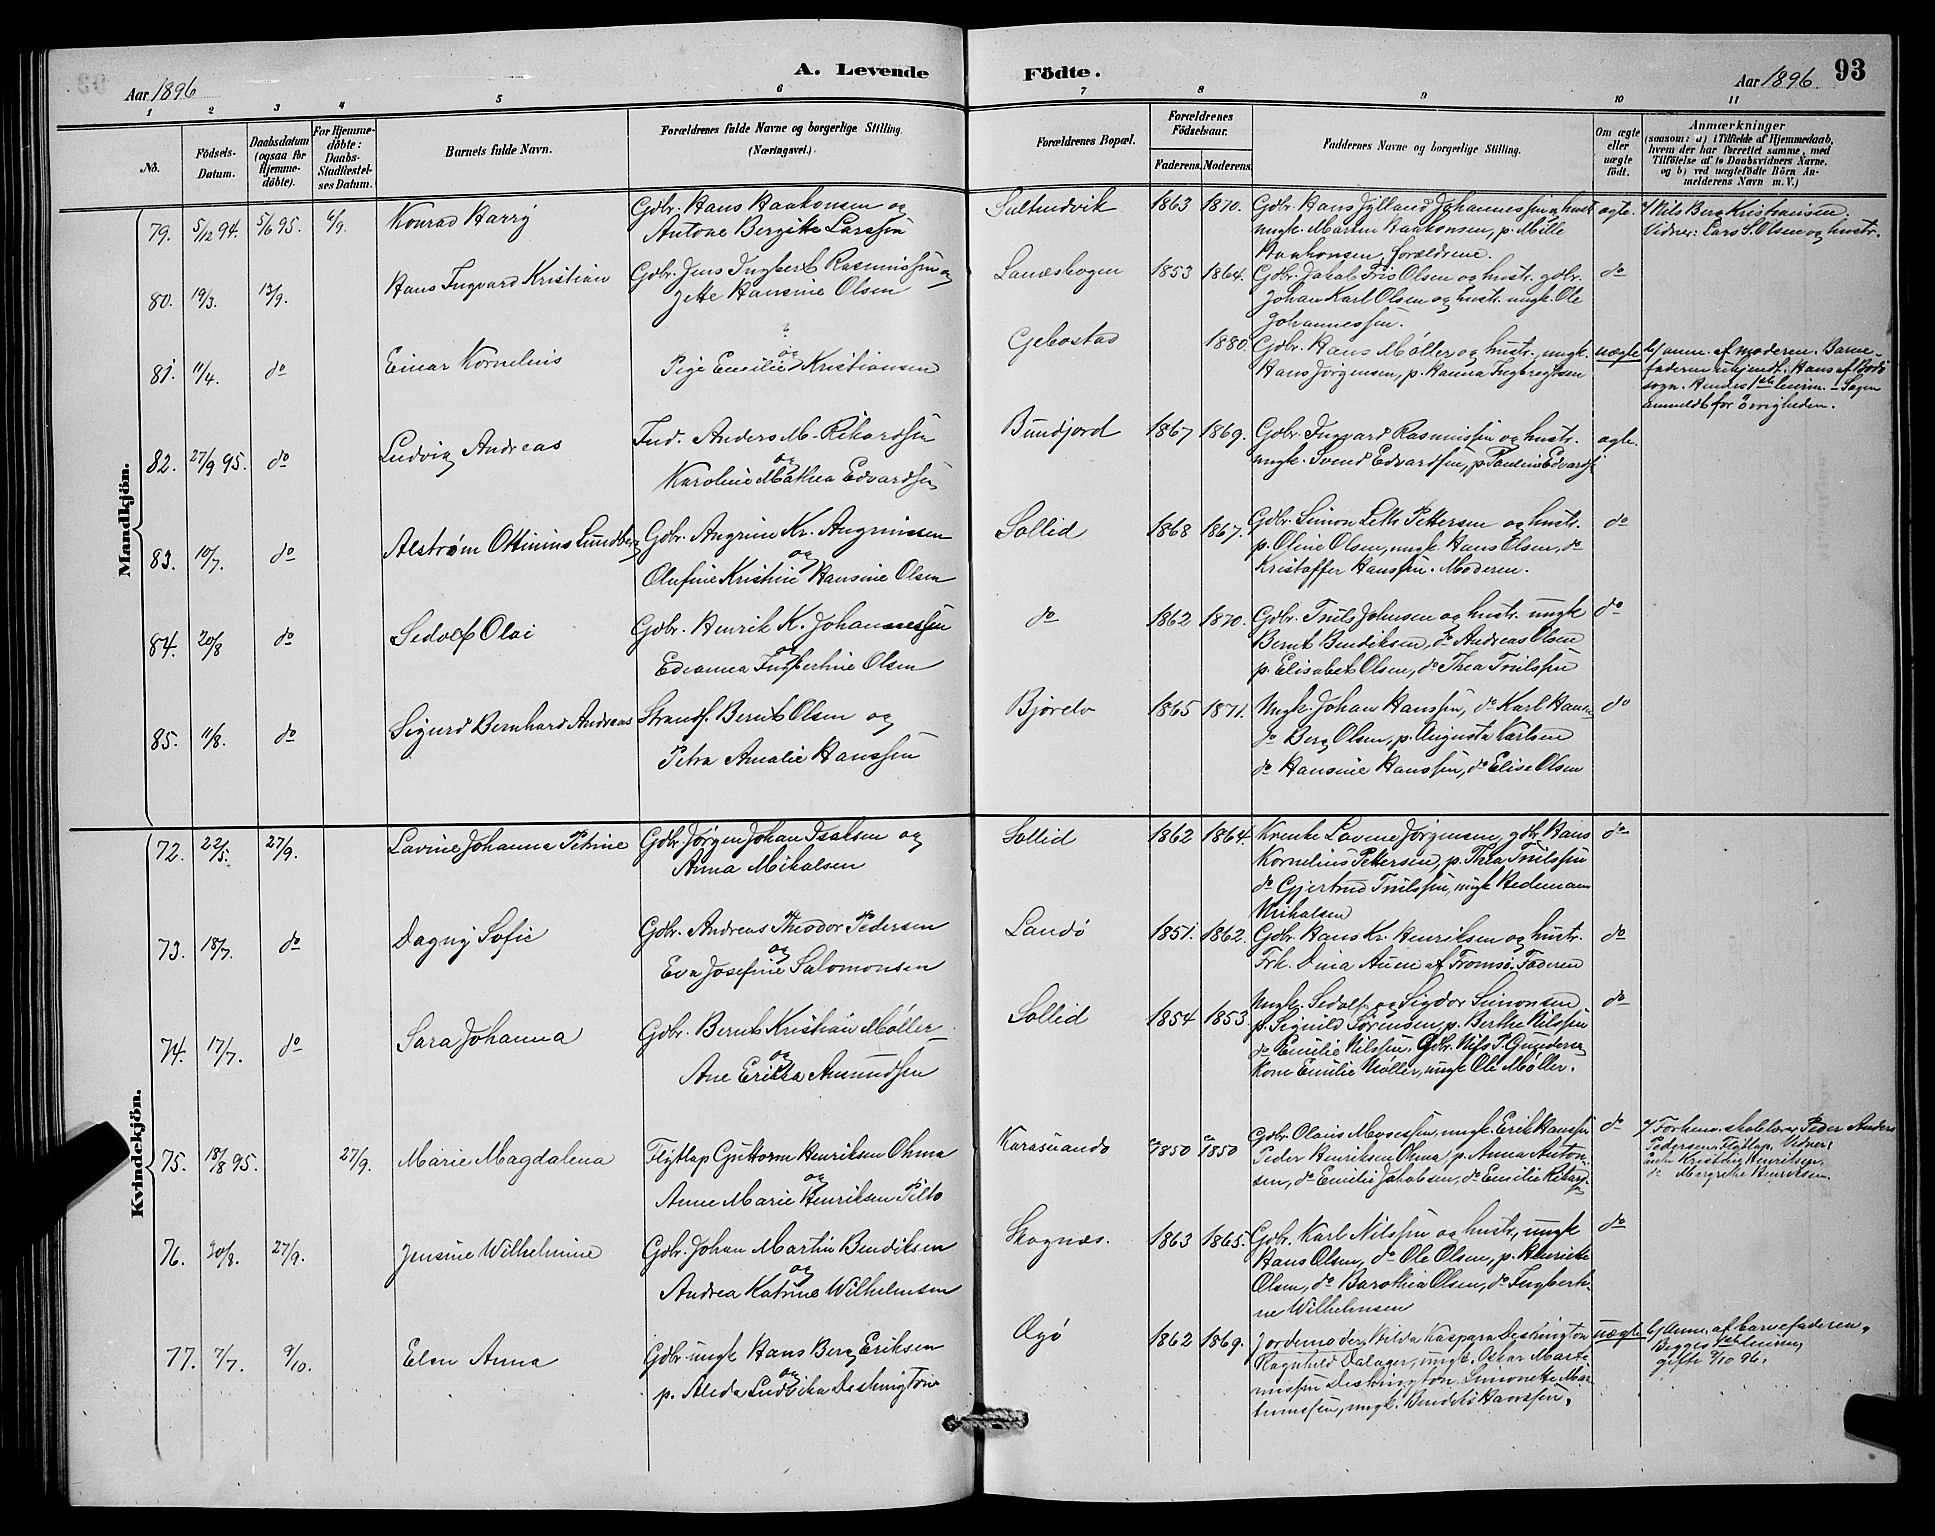 A. Levende Födte.
93
Aar 1896
Aar 1896.
1 2 3 4 5 6 7 8 9 10 11
No.
Födsels-
Datum.
Daabsdatum
(ogsaa for
Hjemme-
döbte).
For Hjemme-
döbte:
Daabs-
Stadfestel-
ses Datum.
Barnets fulde Navn.
Forældrenes fulde Navne og borgerlige Stilling.
(Næringsvei.)
Forældrenes Bopæl.
Forældrenes
Födselsaar.
Faderens. Moderens.
Faddernes Navne og borgerlige Stilling.
Om ægte
eller
uægte
födt.
Anmærkninger
(saasom: a) i Tilfælde af Hjemmedaab,
hvem der har forrettet samme, med
Tilföielse af to Daabsvidners Navne.
og b) ved uægtefödte Börn An-
melderens Navn m. V.)
Mandkjön.
79. 5/12 94. 5/6 95. 6/9. Konrad Harry
Gdbr. Hans Haakonsen og
Antone Bergitte Larssen
Sultindvik 1863 1870.
Gdbr. Hans Jylland Johannessen og hustr.
ungk. Martin Haakonsen, p. Mille
Haakonsen, forældrene.
ægte.
a/ Nils Berg Kristiansen.
Vidner: Lars S. Olsen og hustr.
80. 19/3. 13/9. Hans Ingvard Kristian
Gdbr. Jens Ingbert Rasmussen og
Jette Hansine Olsen
Lanesbogen 1853 1864.
Gdbr. Jakob Friis Olsen og hustr. gdbr.
Johan Karl Olsen og hustr. ungk. Ole
Johannessen.
do
81. 11/4. do Einar Kornelius
?
og
Pige Emilie Kristiansen
Gebostad 1880.
Gdbr. Hans Møller og hustr. ungk.
Hans Jørgensen, p. Hanna Ingbregtsen
uægte
b/ anm. af moderen. Barne-
faderen ukjendt. Hans af Bodø
sogn. Hendes 1ste leierm. - Sagen
anmeldt for Øvrigheden.
82. 27/9 95. do Ludvig Andreas
Ind. Anders M. Rikardsen
og
Karoline Mathea Edvardsen
Bundjord 1867 1869.
Gdbr. Ingvard Rasmussen og hustr.
ungk. Svend Edvardsen, p. Pauline Edvards
ægte.
83. 10/7. do Alstrøm Ottinius Lundberg
Gdbr. Angrim Kr. Angrimsen
og
Olufine Kristine Hansine Olsen
Sollid 1868 1867.
Gdbr. Simon Leth Pettersen og hustr.
p. Oline Olsen, ungk. Hans Olsen, do
Kristoffer Hanssen. Moderen.
do
84. 20/8 do Sedolf Olai
Gdbr. Henrik K. Johannessen
og
Edianna Ingbertine Olsen
do 1862 1870.
Gdbr. Truls Johnsen og hustr. ungk
Bernt Bendiksen, do Andreas Olsen
p. Elisabet Olsen, do Thea Trulssen
do
85. 11/8. do Sigurd Bernhard Andreas
Strands. Bernt Olsen og
Petra Amalie Hanssen
Bjørelv 1865 1871.
Ungk. Johan Hanssen, do Karl Hans-
do Berg Olsen, p. Augusta Karlsen
do Hansine Hanssen, do Elise Olsen
do
Kvindekjön.
72. 22/5. 27/9. Lavine Johanna Petrine
Gdbr. Jørgen Johan Isaksen og
Anna Mikalsen
Sollid 1862 1864.
Kvinde Lavine Jørgensen, gdbr. Hans
Kornelius Pettersen, p. Thea Trulssen
do Gjertrud Trulssen, ungk Hedemann
Mikalsen
do
73. 18/7. do Dagny Sofie
Gdbr. Andreas Theodor Pedersen
og
Eva Josefine Salomonsen
Landø 1851. 1862.
Gdbr. Hans Kr. Henriksen og hustr.
Frk. Dina Aune af Tromsø. Faderen
do
74. 17/7. do Sara Johanna
Gdbr. Bernt Kristian Møller
og
Ane Erikka Amundsen
Sollid 1854 1853
Ungk. Sedolf og Sigdor Simonsen
p. Signild Sørensen, p. Berthe Nilssen
do Emilie Nilssen. Gdbr. Nils P. Gundersen
Kone Emilie Møller, ungk Ole Møller.
do
75. 18/8 95. 27/9. Marie Magdalena
Flytlap Guttorm Henriksen Omma
og
Anne Marie Henriksen Pilto
Karasuando ca 1850 ca 1850
Gdbr. Olaus Mosessen, ungk. Erik Hanssen
Peder Henriksen Omma, p. Anna Anton-
sen, do Emilie Jakobsen, do Emilie Rikard-
sen
do
a/ Forhenv. skolelærer Peder Anders
Pedersen, Flytlap. Vidner:
Enke Kristine Henriksen,
do Margrethe Henriksen.
76. 30/8. 27/9. Jensine Wilhelmine
Gdbr. Johan Martin Bendiksen
og
Andrea Katrine Wilhelmsen
Skognæs. 1863 1865.
Gdbr. Karl Nilssen og hustr., ungk
Hans Olsen, do Ole Olsen, p. Henriette
Olsen, do Barothea Olsen, do Ingbert-
ne Wilhelmsen
do
77. 7/7. 9/10. Elen Anna
Gdbr. ungk Hans Berg Eriksen
og
p. Alida Ludvika Deskington
Øgø 1862 1869.
Jordemoder Hilda Kaspara Deskington
Ragnhild Dalager, ungk. Oskar Marti-
nussen Deskington, Simonette Mar-
tinussen, ungk. Bendik Hanssen.
uægte
b/ Anm. af barnefaderen.
Begges 1ste leierm,
gifte 9/10 96.